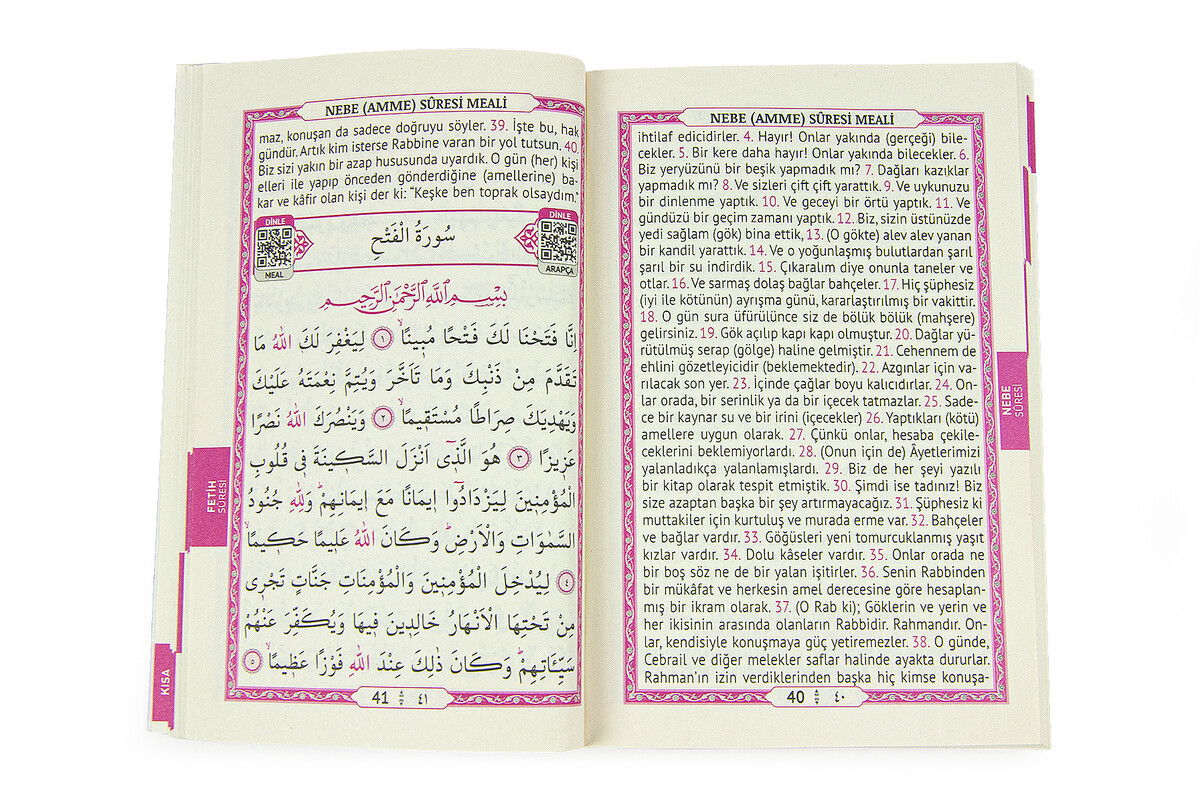 NEBE (AMME) SÛRESİ MEALİ
ihtilaf edicidirler. 4. Hayır! Onlar yakında (gerçeği) bile-
cekler. 5. Bir kere daha hayır! Onlar yakında bilecekler. 6.
Biz yeryüzünü bir beşik yapmadık mı? 7. Dağları kazıklar
yapmadık mı? 8. Ve sizleri çift çift yarattık. 9. Ve uykunuzu
bir dinlenme yaptık. 10. Ve geceyi bir örtü yaptık. 11. Ve
gündüzü bir geçim zamanı yaptık. 12. Biz, sizin üstünüzde
yedi sağlam (gök) bina ettik, 13. (O gökte) alev alev yanan
bir kandil yarattık. 14. Ve o yoğunlaşmış bulutlardan şarıl
şarıl bir su indirdik. 15. Çıkaralım diye onunla taneler ve
otlar. 16. Ve sarmaş dolaş bağlar bahçeler. 17. Hiç şüphesiz
(iyi ile kötünün) ayrışma günü, kararlaştırılmış bir vakittir.
18. O gün sura üfürülünce siz de bölük bölük (mahşere)
gelirsiniz. 19. Gök açılıp kapı kapı olmuştur. 20. Dağlar yü-
rütülmüş serap (gölge) haline gelmiştir. 21. Cehennem de
ehlini gözetleyicidir (beklemektedir). 22. Azgınlar için va-
rılacak son yer. 23. İçinde çağlar boyu kalıcıdırlar. 24. On-
lar orada, bir serinlik ya da bir içecek tatmazlar. 25. Sade-
ce bir kaynar su ve bir irini (içecekler) 26. Yaptıkları (kötü)
amellere uygun olarak. 27. Çünkü onlar, hesaba çekile-
ceklerini beklemiyorlardı. 28. (Onun için de) Âyetlerimizi
yalanladıkça yalanlamışlardı. 29. Biz de her şeyi yazılı
bir kitap olarak tespit etmiştik. 30. Şimdi ise tadınız! Biz
size azaptan başka bir şey artırmayacağız. 31. Şüphesiz ki
muttakiler için kurtuluş ve murada erme var. 32. Bahçeler
ve bağlar vardır. 33. Göğüsleri yeni tomurcuklanmış yaşıt
kızlar vardır. 34. Dolu kâseler vardır. 35. Onlar orada ne
bir boş söz ne de bir yalan işitirler. 36. Senin Rabbinden
bir mükâfat ve herkesin amel derecesine göre hesaplan-
mış bir ikram olarak. 37. (O Rab ki); Göklerin ve yerin ve
her ikisinin arasında olanların Rabbidir. Rahmandır. On-
lar, kendisiyle konuşmaya güç yetiremezler. 38. O günde,
Cebrail ve diğer melekler saflar halinde ayakta dururlar.
Rahman'ın izin verdiklerinden başka hiç kimse konuşa-
40 ٤٠
NEBE
SÛRESİ
NEBE (AMME) SÛRESİ MEALİ
maz, konuşan da sadece doğruyu söyler. 39. İşte bu, hak
gündür. Artık kim isterse Rabbine varan bir yol tutsun. 40.
Biz sizi yakın bir azap hususunda uyardık. O gün (her) kişi
elleri ile yapıp önceden gönderdiğine (amellerine) ba-
kar ve kâfir olan kişi der ki: “Keşke ben toprak olsaydım.”
DİNLE
MEAL
سُورَةُ الْفَتْحِ
DİNLE
ARAPÇA
بِسْمِ اللّٰهِ الرَّحْمٰنِ الرَّحِيمِ
اِنَّا فَتَحْنَا لَكَ فَتْحًا مُبٖينًاۙ ﴿١﴾ لِيَغْفِرَ لَكَ اللّٰهُ مَا
تَقَدَّمَ مِنْ ذَنْبِكَ وَمَا تَاَخَّرَ وَيُتِمَّ نِعْمَتَهُ عَلَيْكَ
وَيَهْدِيَكَ صِرَاطًا مُسْتَقٖيمًاۙ ﴿٢﴾ وَيَنْصُرَكَ اللّٰهُ نَصْرًا
عَزٖيزًا ﴿٣﴾ هُوَ الَّذٖٓى اَنْزَلَ السَّكٖينَةَ فٖى قُلُوبِ
الْمُؤْمِنٖينَ لِيَزْدَادُٓوا اٖيمَانًا مَعَ اٖيمَانِهِمْؕ وَلِلّٰهِ جُنُودُ
السَّمٰوَاتِ وَالْاَرْضِؕ وَكَانَ اللّٰهُ عَلٖيمًا حَكٖيمًاۙ
﴿٤﴾ لِيُدْخِلَ الْمُؤْمِنٖينَ وَالْمُؤْمِنَاتِ جَنَّاتٍ تَجْرٖى
مِنْ تَحْتِهَا الْاَنْهَارُ خَالِدٖينَ فٖيهَا وَيُكَفِّرَ عَنْهُمْ
سَيِّـَٔاتِهِمْؕ وَكَانَ ذٰلِكَ عِنْدَ اللّٰهِ فَوْزًا عَظٖيمًاۙ ﴿٥﴾
41 ٤١
FETİH
SÛRESİ
KISA